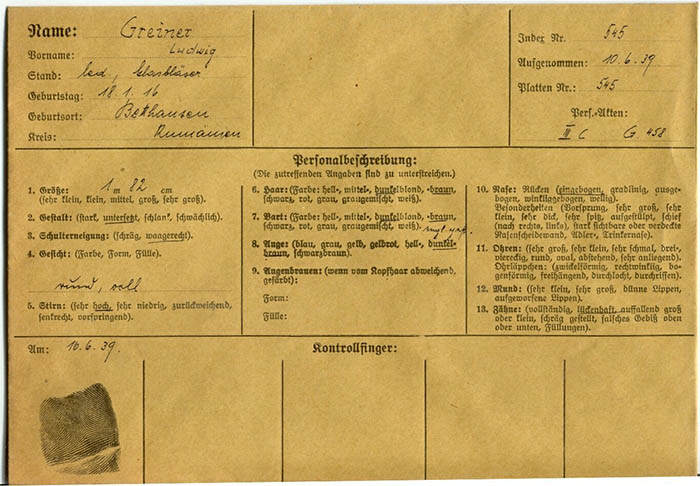 Name: Greiner
Vorname: Ludwig
Stand: led., Glasbläser
Geburtstag: 18. 1. 16
Geburtsort: Bethausen
Kreis: Rumänien
Index Nr. 545
Aufgenommen: 10. 6. 39
Platten Nr.: 545
Pers.-Akten:
III C G. 458
Personalbeschreibung:
(Die zutreffenden Angaben sind zu unterstreichen.)
1. Größe: 1 m 82 cm
(sehr klein, klein, mittel, groß, sehr groß).
2. Gestalt: (stark, untersetzt, schlank, schwächlich).
3. Schulterneigung: (schräg, waagerecht).
4. Gesicht: (Farbe, Form, Fülle).
rund, voll
5. Stirn: (sehr hoch, sehr niedrig, zurückweichend,
senkrecht, vorspringend).
6. Haar: (Farbe: hell-, mittel-, dunkelblond, -braun,
schwarz, rot, grau, graugemischt, weiß).
7. Bart: (Farbe: hell-, mittel-, dunkelblond, -braun,
schwarz, rot, grau, graugemischt, weiß).
8. Auge: (blau, grau, gelb, gelbrot, hell-, dunkel-
braun, schwarzbraun).
9. Augenbrauen: (wenn vom Kopfhaar abweichend,
gefärbt):
Form:
Fülle:
10. Nase: Rücken (eingebogen, gradlinig, ausge-
bogen, winkliggebogen, wellig).
Besonderheiten (Vorsprung, sehr groß, sehr
klein, sehr dick, sehr spitz, aufgestülpt, schief
(nach rechts, links), stark sichtbare oder verdeckte
Nasenscheidewand, Adler-, Trinkernase).
11. Ohren: (sehr groß, sehr klein, sehr schmal, drei-,
viereckig, rund, oval, abstehend, sehr anliegend).
Ohrläppchen: (zwickelförmig, rechtwinklig, bo-
genförmig, freihängend, durchlocht, durchrissen).
12. Mund: (sehr klein, sehr groß, dünne Lippen,
aufgeworfene Lippen).
13. Zähne: (vollständig, lückenhaft, auffallend groß
oder klein, schräg gestellt, falsches Gebiß oben
oder unten, Füllungen).
Am: 10. 6. 39.
Kontrollfinger: